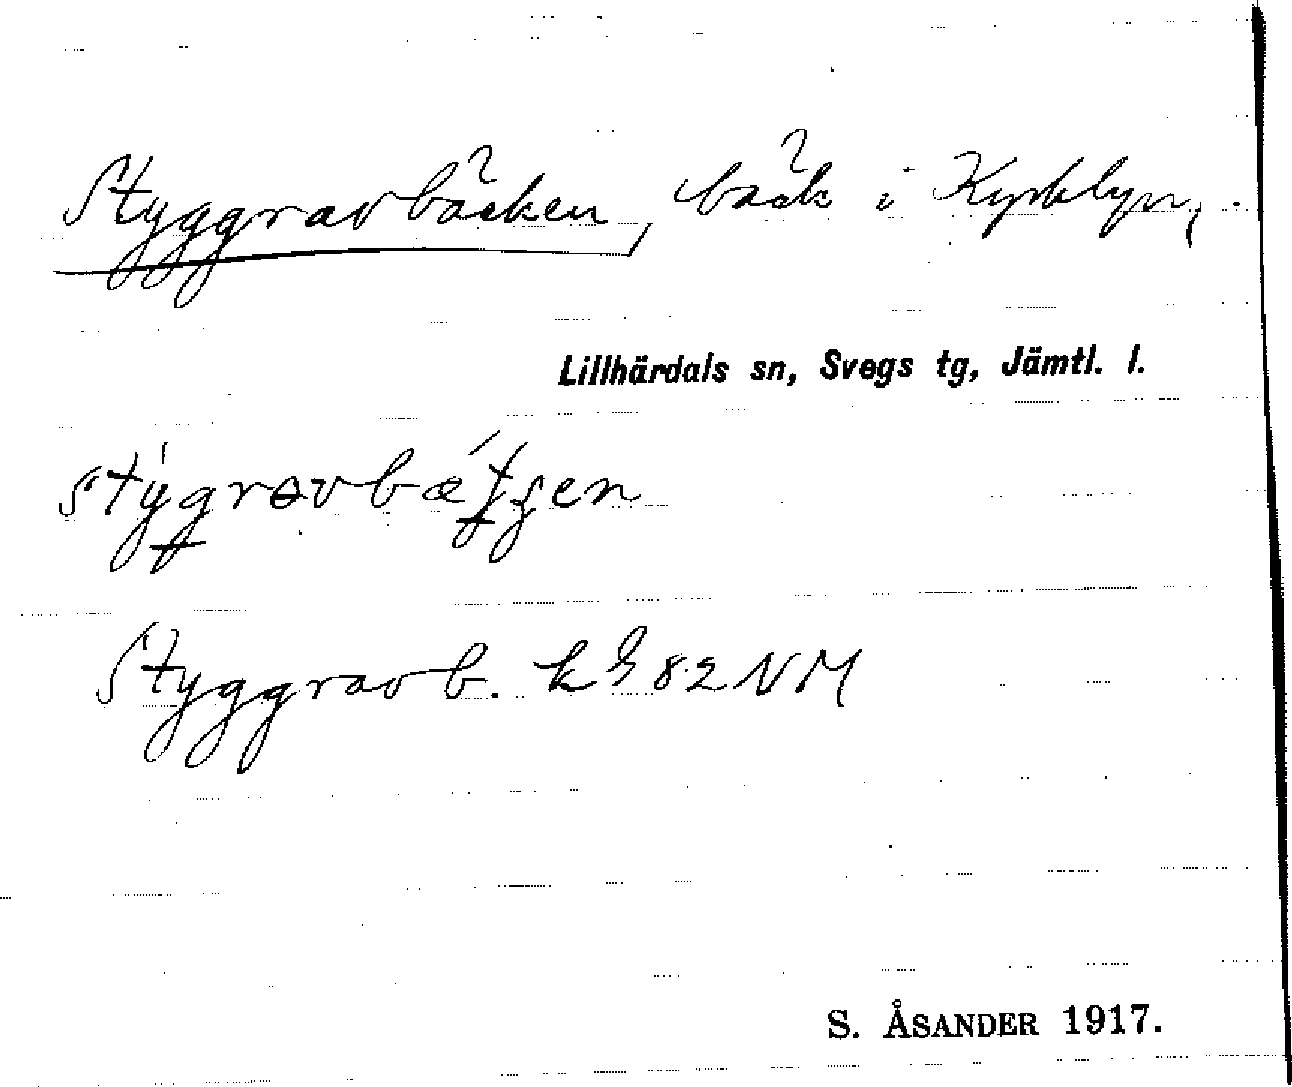 Styggravbäcken, bäck i Kyrkbyn,
Lillhärdals sn, Svegs tg, Jämtl. l.
stýgravbǽtʃen
Styggravb. k 82 NM
S. ÅSANDER 1917.